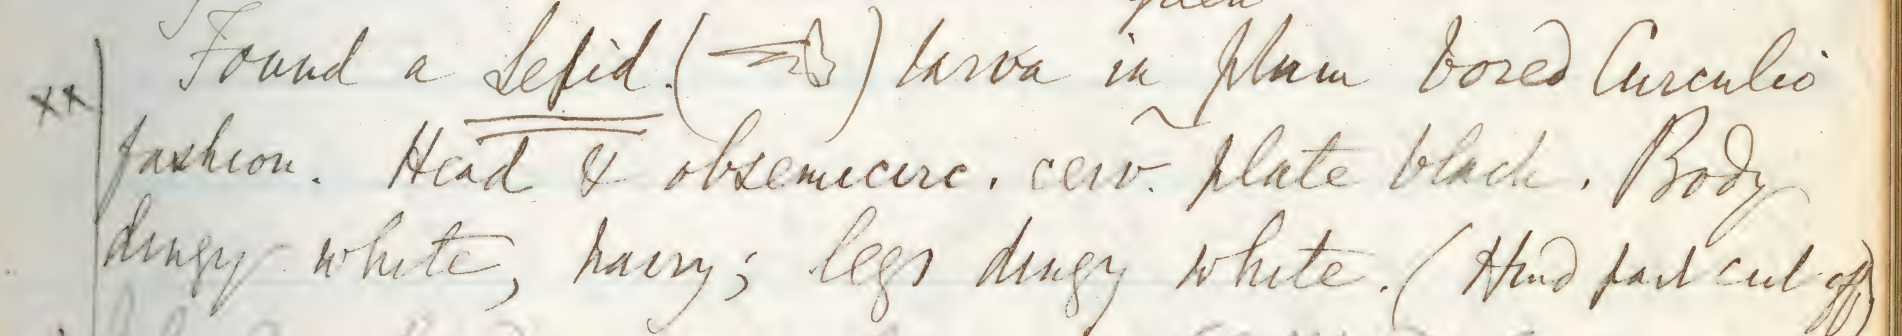 Found a Lepid. (☜) larva in plum bored Curculio
xx
fashion. Head & obsemicirc. cerv. plate black. Body
dingy white, hairy; legs dingy white. (Hind part cut off)